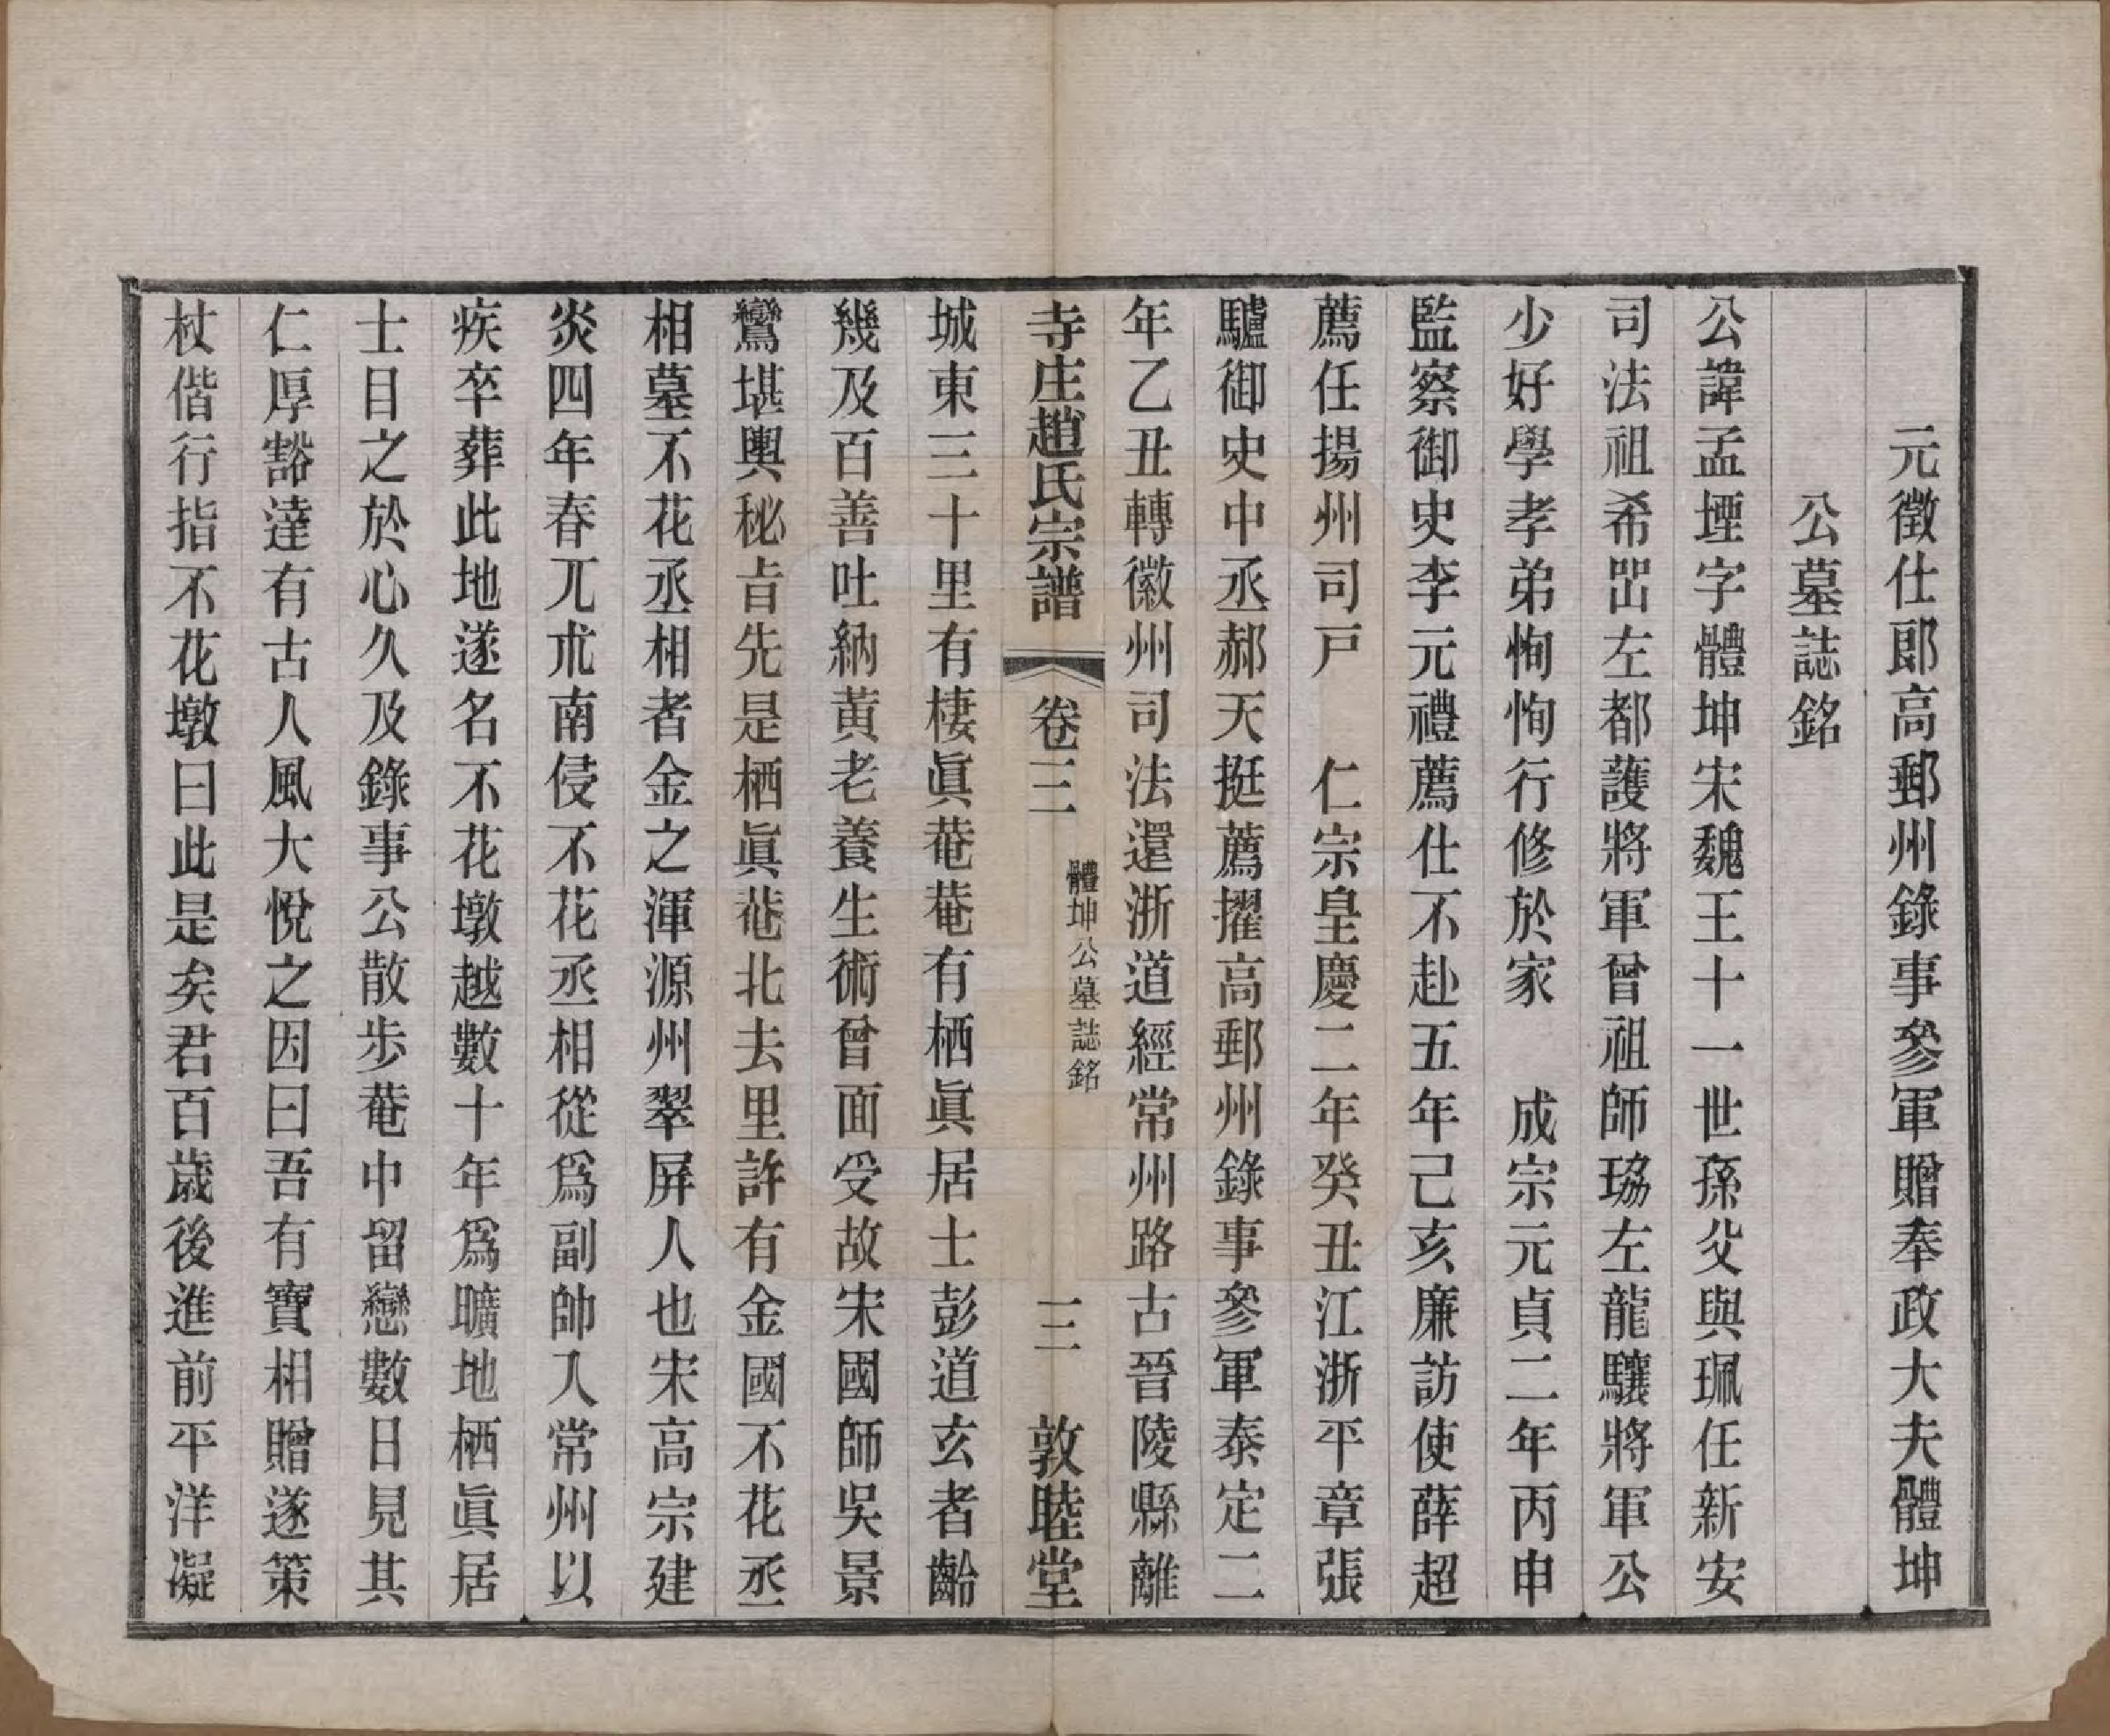 元徵仕郎高郵州錄事參軍贈奉政大夫體坤
公墓誌銘
公諱孟堙字體坤宋魏王十一世孫父與珮任新安
司法祖希喆左都護將軍曾祖師㺹左龍驤將軍公
少好學孝弟恂恂行修於家　成宗元貞二年丙申
監察御史李元禮薦仕不赴五年己亥廉訪使薛超
薦任揚州司戸　仁宗皇慶二年癸丑江浙平章張
驢御史中丞郝天挺薦擢高郵州錄事參軍泰定二
年乙丑轉徽州司法還浙道經常州路古晉陵縣離
寺庄趙氏宗譜
卷三
體坤公墓誌銘
三
敦睦堂
城東三十里有棲眞菴菴有栖眞居士彭道玄者齡
幾及百善吐納黃老養生術曾面受故宋國師吳景
鸞堪輿秘旨先是栖眞菴北去里許有金國不花丞
相墓不花丞相者金之渾源州翠屏人也宋高宗建
炎四年春兀朮南侵不花丞相從爲副帥入常州以
疾卒葬此地遂名不花墩越數十年爲曠地栖眞居
士目之於心久及錄事公散步菴中留戀數日見其
仁厚豁達有古人風大悅之因曰吾有寶相贈遂策
杖偕行指不花墩曰此是矣君百歲後進前平洋凝